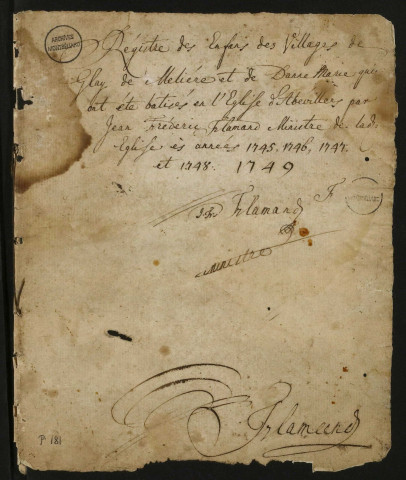 Régistre des Enfans des Villages de
Glay de Meliére et de Danne Marie qui
ont été batisés en l'Eglise d'Abbevillers par
Jean Fréderic Flamand Ministre de lad.
Eglise és années 1745. 1746. 1747.
et 1748. 1749
ARCHIVES
MONTBÉLIARD
Flamand
ministre
Flamand
P 181